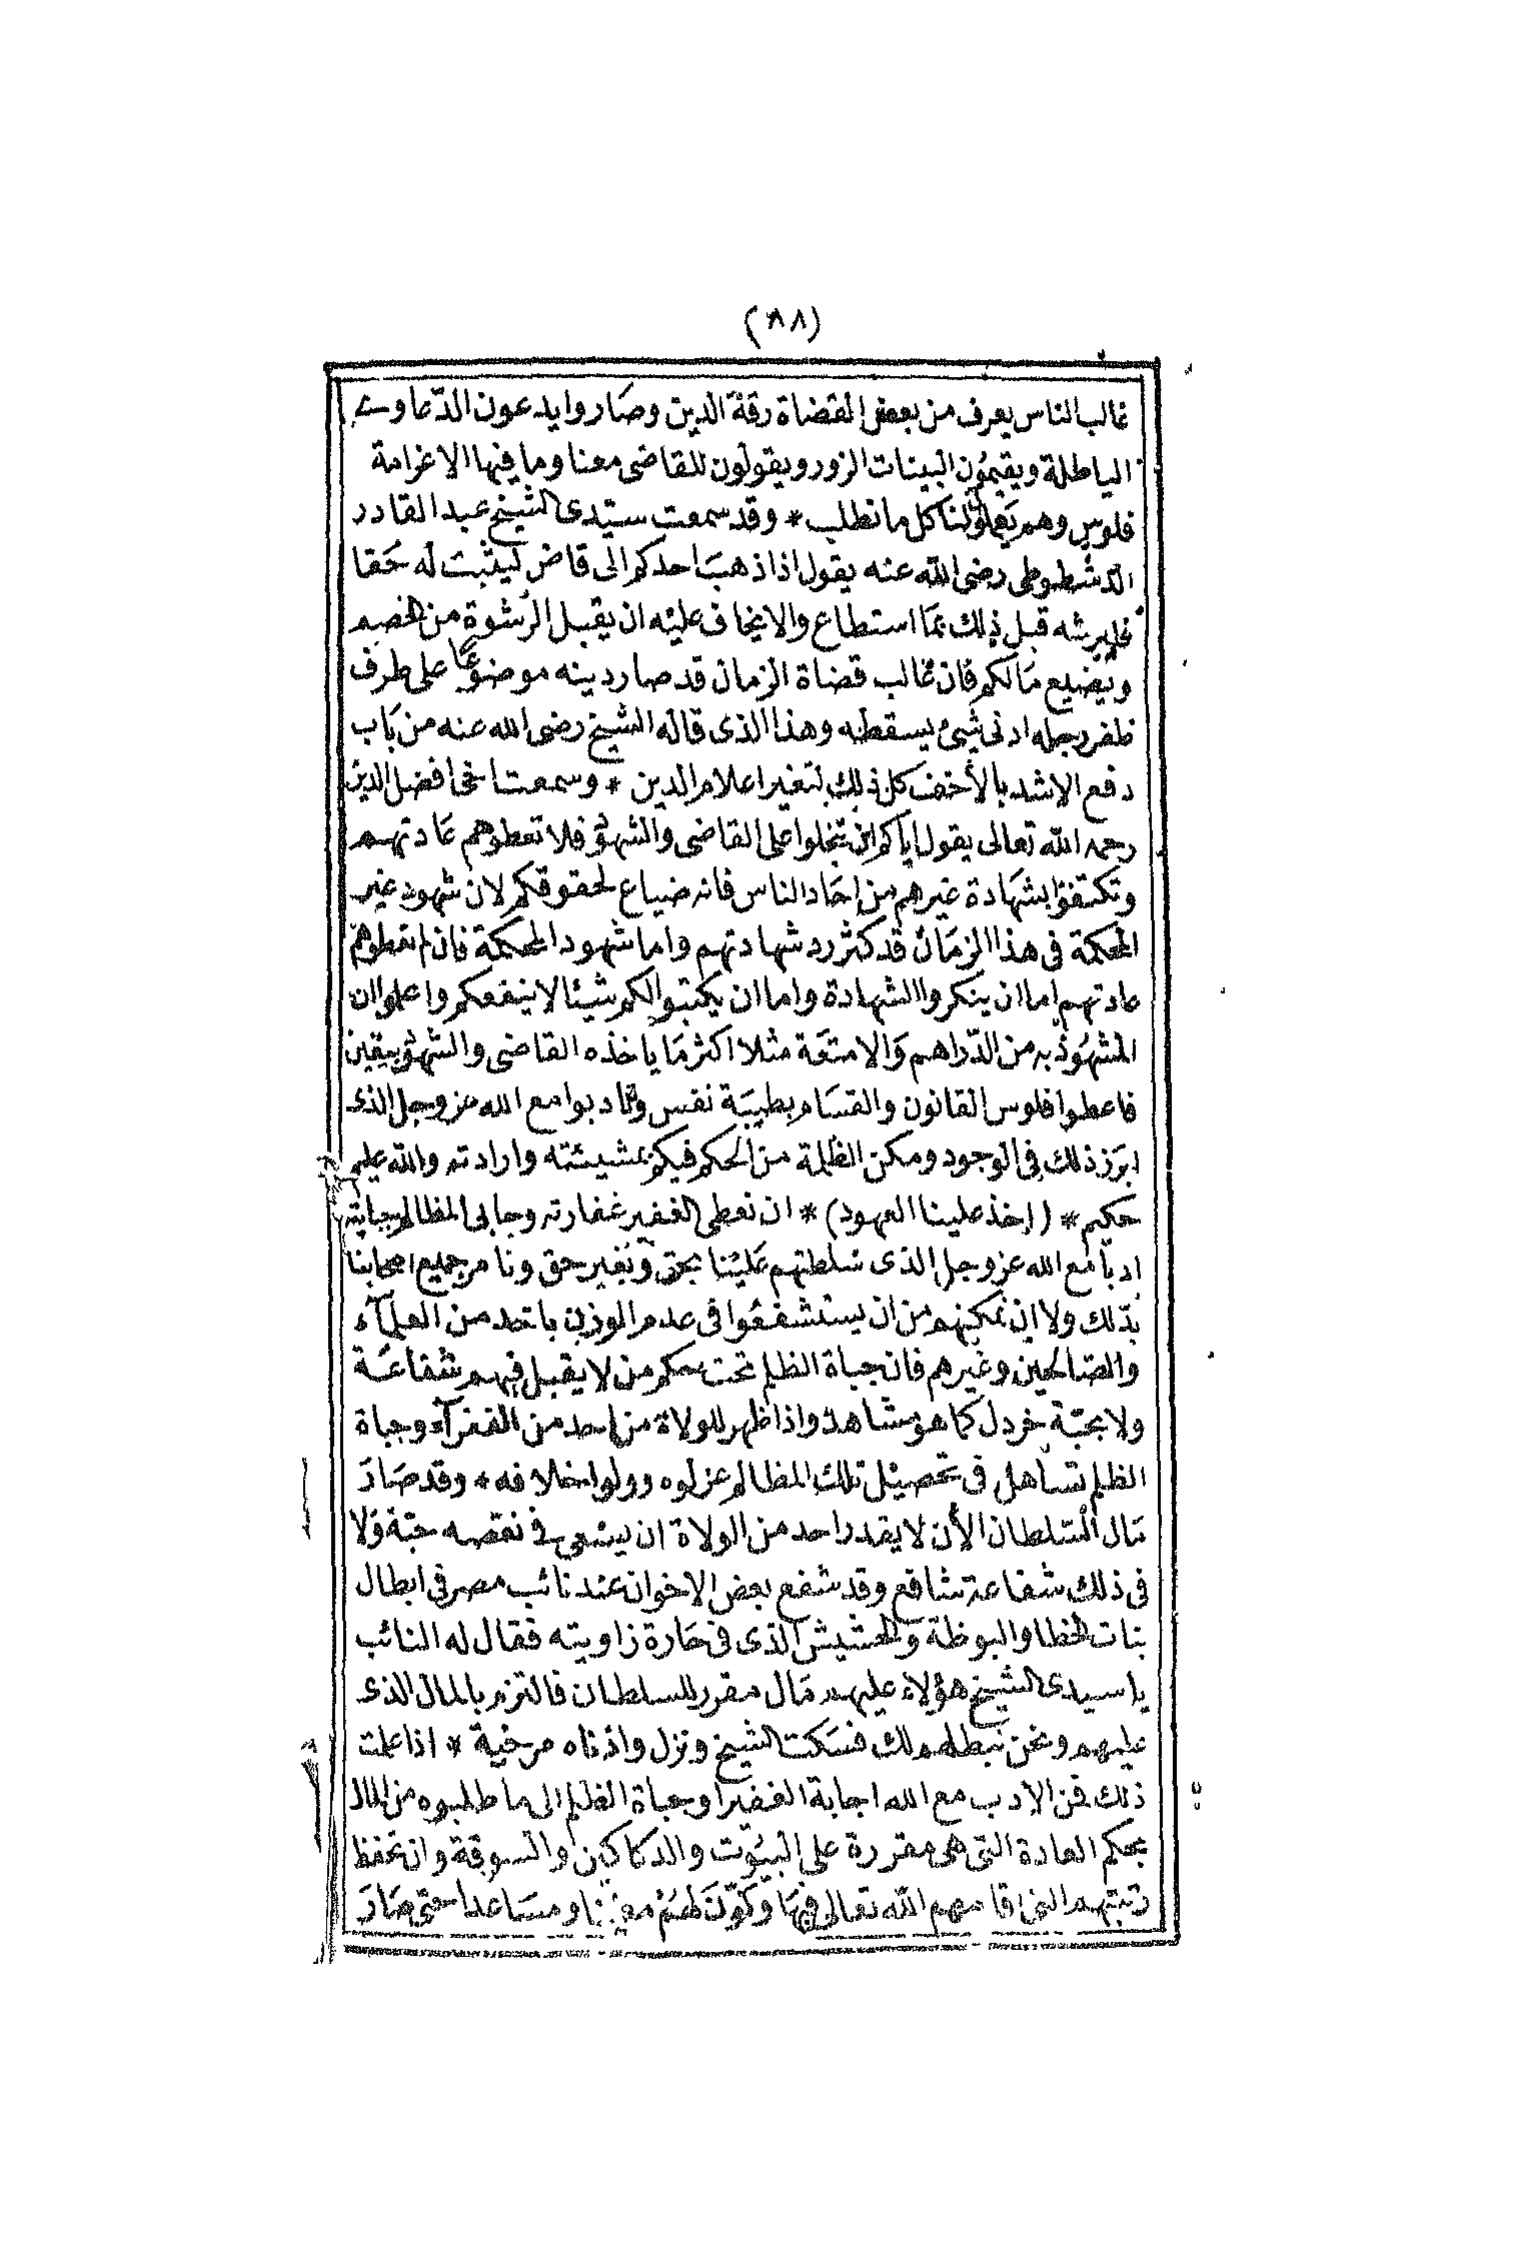 (٨٨)
غالب الناس يعرف من بعض القضاة رقة الدين وصَاروا يدعون الدّعاوى
الباطلة ويقيمُون البينات الزور ويقولون للقاضى معنا وما فيها الا غرامة
فلوس وهم يَعملوُلنا كل ما نطلب * وقد سمعت سيّدى الشيخ عبد القادر
الدشطوطى رضى الله عنه يقول اذا ذهبَ احدكم الى قاض ليثبت له حَقا
فليرشه قبل ذلك بمَا استطاع والا يخاف عليْه ان يقبل الرّشوة من الخصم
ويضيع مَالكم فان غالب قضاة الزمان قد صار دينه موضوعًا على طرف
ظفر رجله ادنى شئ يسقطه وهذا الذى قاله الشيخ رضى الله عنه من بَاب
دفع الاشد بالأخف كل ذلك لتغير اعلام الدين * وسمعت اخى افضل الدين
رحمه الله تعالى يقول اياكم ان تبخلوا على القاضى والشهود فلا تعطوهم عَادتهم
وتكتفوا بشهَادة غيرهم من احَاد الناس فانه ضياع لحقوقكم لان شهود غير
المحكمة فى هذا الزمَان قد كثر رد شهادتهم واما شهود المحكمة فان لم تعطوهم
عادتهم اما ان ينكروا الشهادة واما ان يكتبوا لكم شيئا لا ينفعكم واعلموا ان
المشهُود به من الدّراهم وَالامتعَة مثلا اكثر مَا ياخذه القاضى والشهود بيقين
فاعطوا فلوس القانون والقسَام بطيبَة نفس وتادبوا مع الله عز وجل الذى
ابرَز ذلك فى الوجود ومكن الظلمة من الحكم فيكم بمشيئته وارادته والله عليم
حكيم * (اخذ علينا العهود) * ان نعطى الغفير غفارته وجابى المظالم جبايته
ادبا مع الله عز وجل الذى سَلطهم عَليْنا بحق وَبغير حق ونامر جميع اصحابنا
بذلك ولا ان نمكنهم من ان يستشفعُوا فى عدم الوزن باحد من العلمآء
والصَالحين وغيرهم فان جباة الظلم تحت حكم من لا يقبل فيهم شفاعَة
ولا بحبّة خردل كما هو مشاهد واذا ظهر للولاة من احد من الفقرآء وجباة
الظلم تساهل فى تحصيْل تلك المظالم عزلوه وولوا خلافه * وقد صَارَ
مَال السّلطان الأن لا يقدر احد من الولاة ان يسْعى فى نقصه حبّة وَلا
فى ذلك شفاعة شافع وقد شفع بعض الاخوان عند نائب مصر فى ابطال
بنات الخطا والبوظة والحشيش الذى فى حَارة زاويته فقال له النائب
يا سيدى الشيخ هؤلاء عليهم مَال مقرر للسلطان فالتزم بالمال الذى
عليهم ونحن نبطلهم لك فسَكت الشيخ ونزل واذناه مرخية * اذا علمت
ذلك فمن الادب مع الله اجابة الغفير او جباة الظلم الى ما طلبوه من المال
بحكم العادة التى هى مقررة على البيُوت والدكاكين والسوقة وان تحفظ
رتبتهم التى اقامهم الله تعالى فيهَا وَكوّنَ لهُمْ معينا ومسَاعدا حتى صَارَ